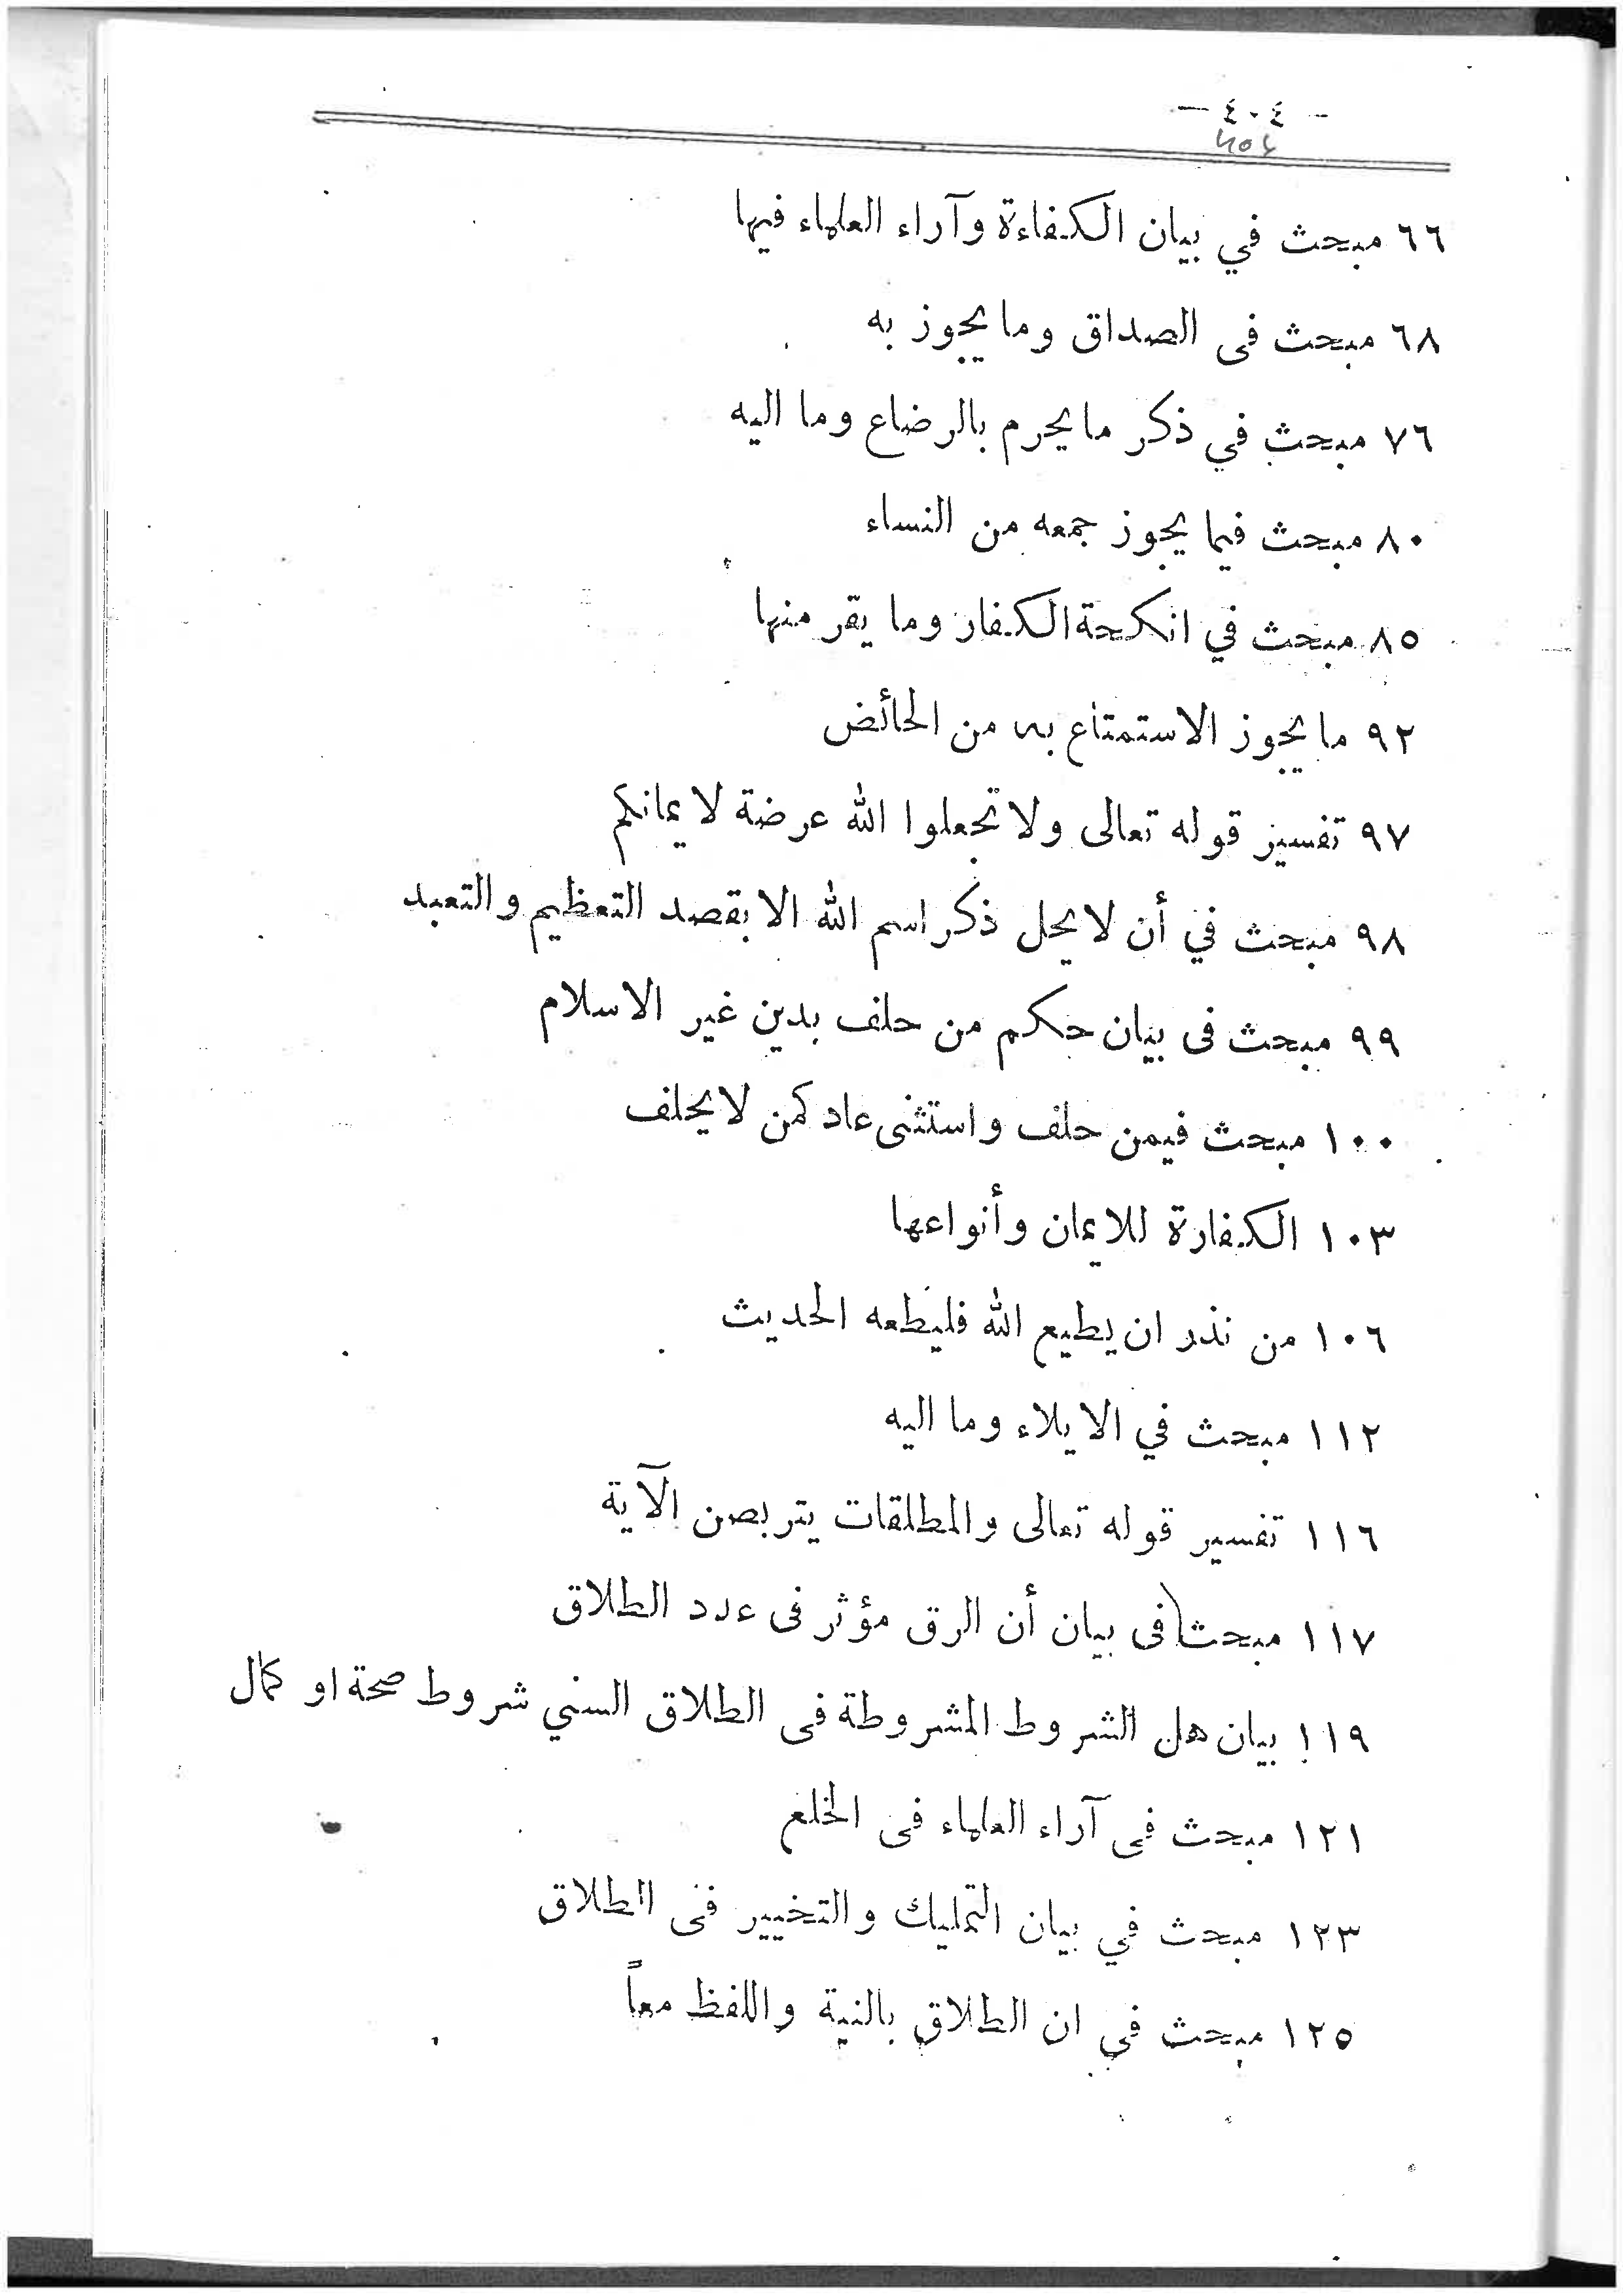 — ٤٠٤ —
404
٦٦ مبحث في بيان الكفاءة وآراء العلماء فيها
٦٨ مبحث فى الصداق وما يجوز به
٧٦ مبحث في ذكر ما يحرم بالرضاع وما اليه
٨٠ مبحث فيما يجوز جمعه من النساء
٨٥ مبحث في انكحة الكفار وما يقر منها
٩٢ ما يجوز الاستمتاع به من الحائض
٩٧ تفسير قوله تعالى ولا تجعلوا الله عرضة لايمانكم
٩٨ مبحث في أن لا يحل ذكر اسم الله الا بقصد التعظيم والتعبد
٩٩ مبحث فى بيان حكم من حلف بدين غير الاسلام
١٠٠ مبحث فيمن حلف واستثنى عاد كمن لا يحلف
١٠٣ الكفارة للايمان وأنواعها
١٠٦ من نذر ان يطيع الله فليطعه الحديث
١١٢ مبحث في الايلاء وما اليه
١١٦ تفسير قوله تعالى والمطلقات يتربصن الآية
١١٧ مبحث فى بيان أن الرق مؤثر فى عدد الطلاق
١١٩ بيان هل الشروط المشروطة فى الطلاق السني شروط صحة او كمال
١٢١ مبحث فى آراء العلماء فى الخلع
١٢٣ مبحث في بيان التمليك والتخيير فى الطلاق
١٢٥ مبحث في ان الطلاق بالنية واللفظ معاً